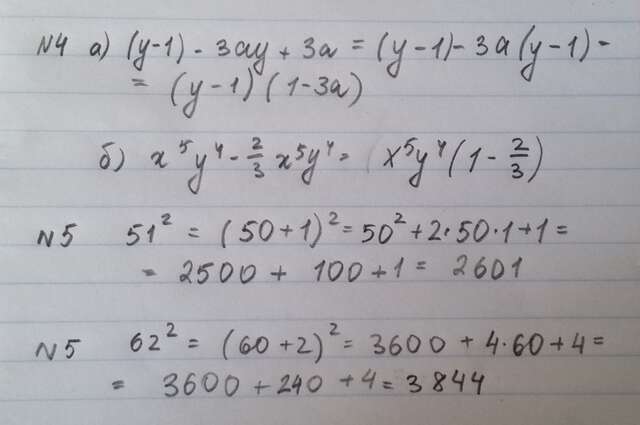 N4 а) (y-1) - 3ay + 3a = (y-1) - 3a(y-1) -
= (y-1)(1-3a)
б) x⁵y⁴ - 2/3 x⁵y⁴ = x⁵y⁴(1 - 2/3)
N5 51² = (50+1)² = 50² + 2·50·1 + 1 =
= 2500 + 100 + 1 = 2601
N5 62² = (60+2)² = 3600 + 4·60 + 4 =
= 3600 + 240 + 4 = 3844